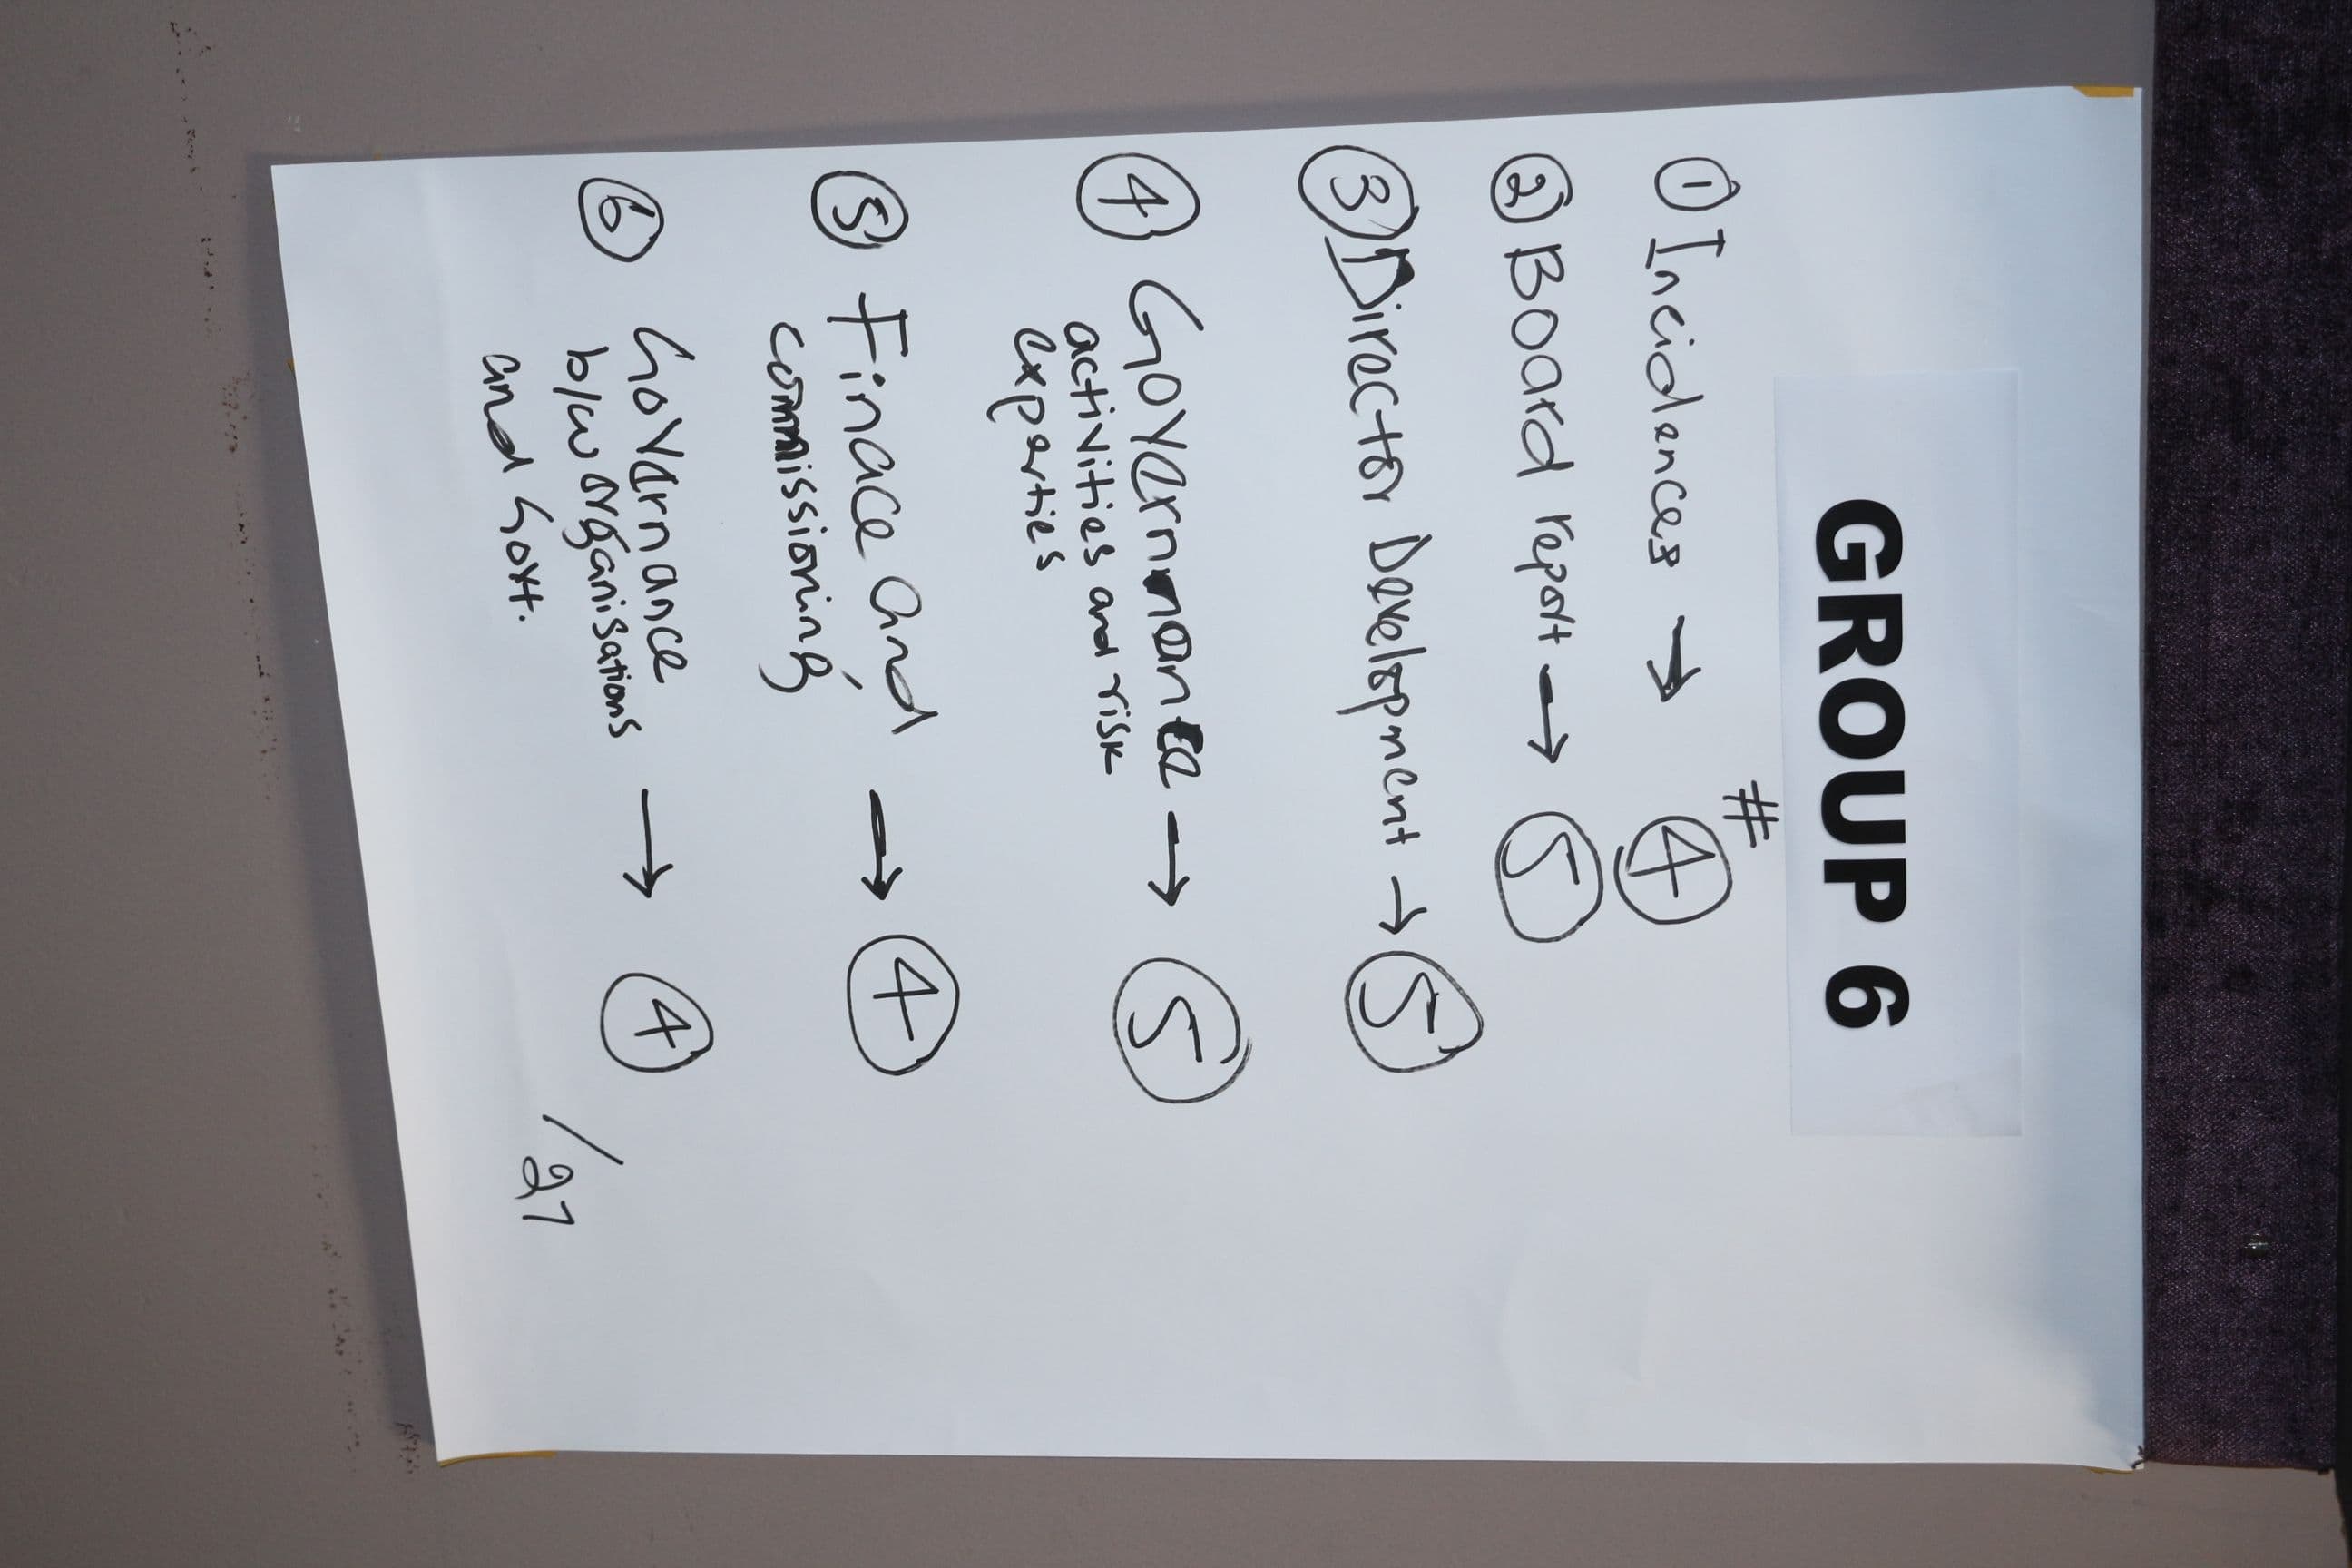 GROUP 6
#
① Incidences → ④
② Board report → ⑤
③ Director Development → ⑤
④ Governmance → ⑤
activities and risk
experties
⑤ Finace and → ④
commissioning
⑥ Governance
b/w organisations → ④
and Govt.
/27